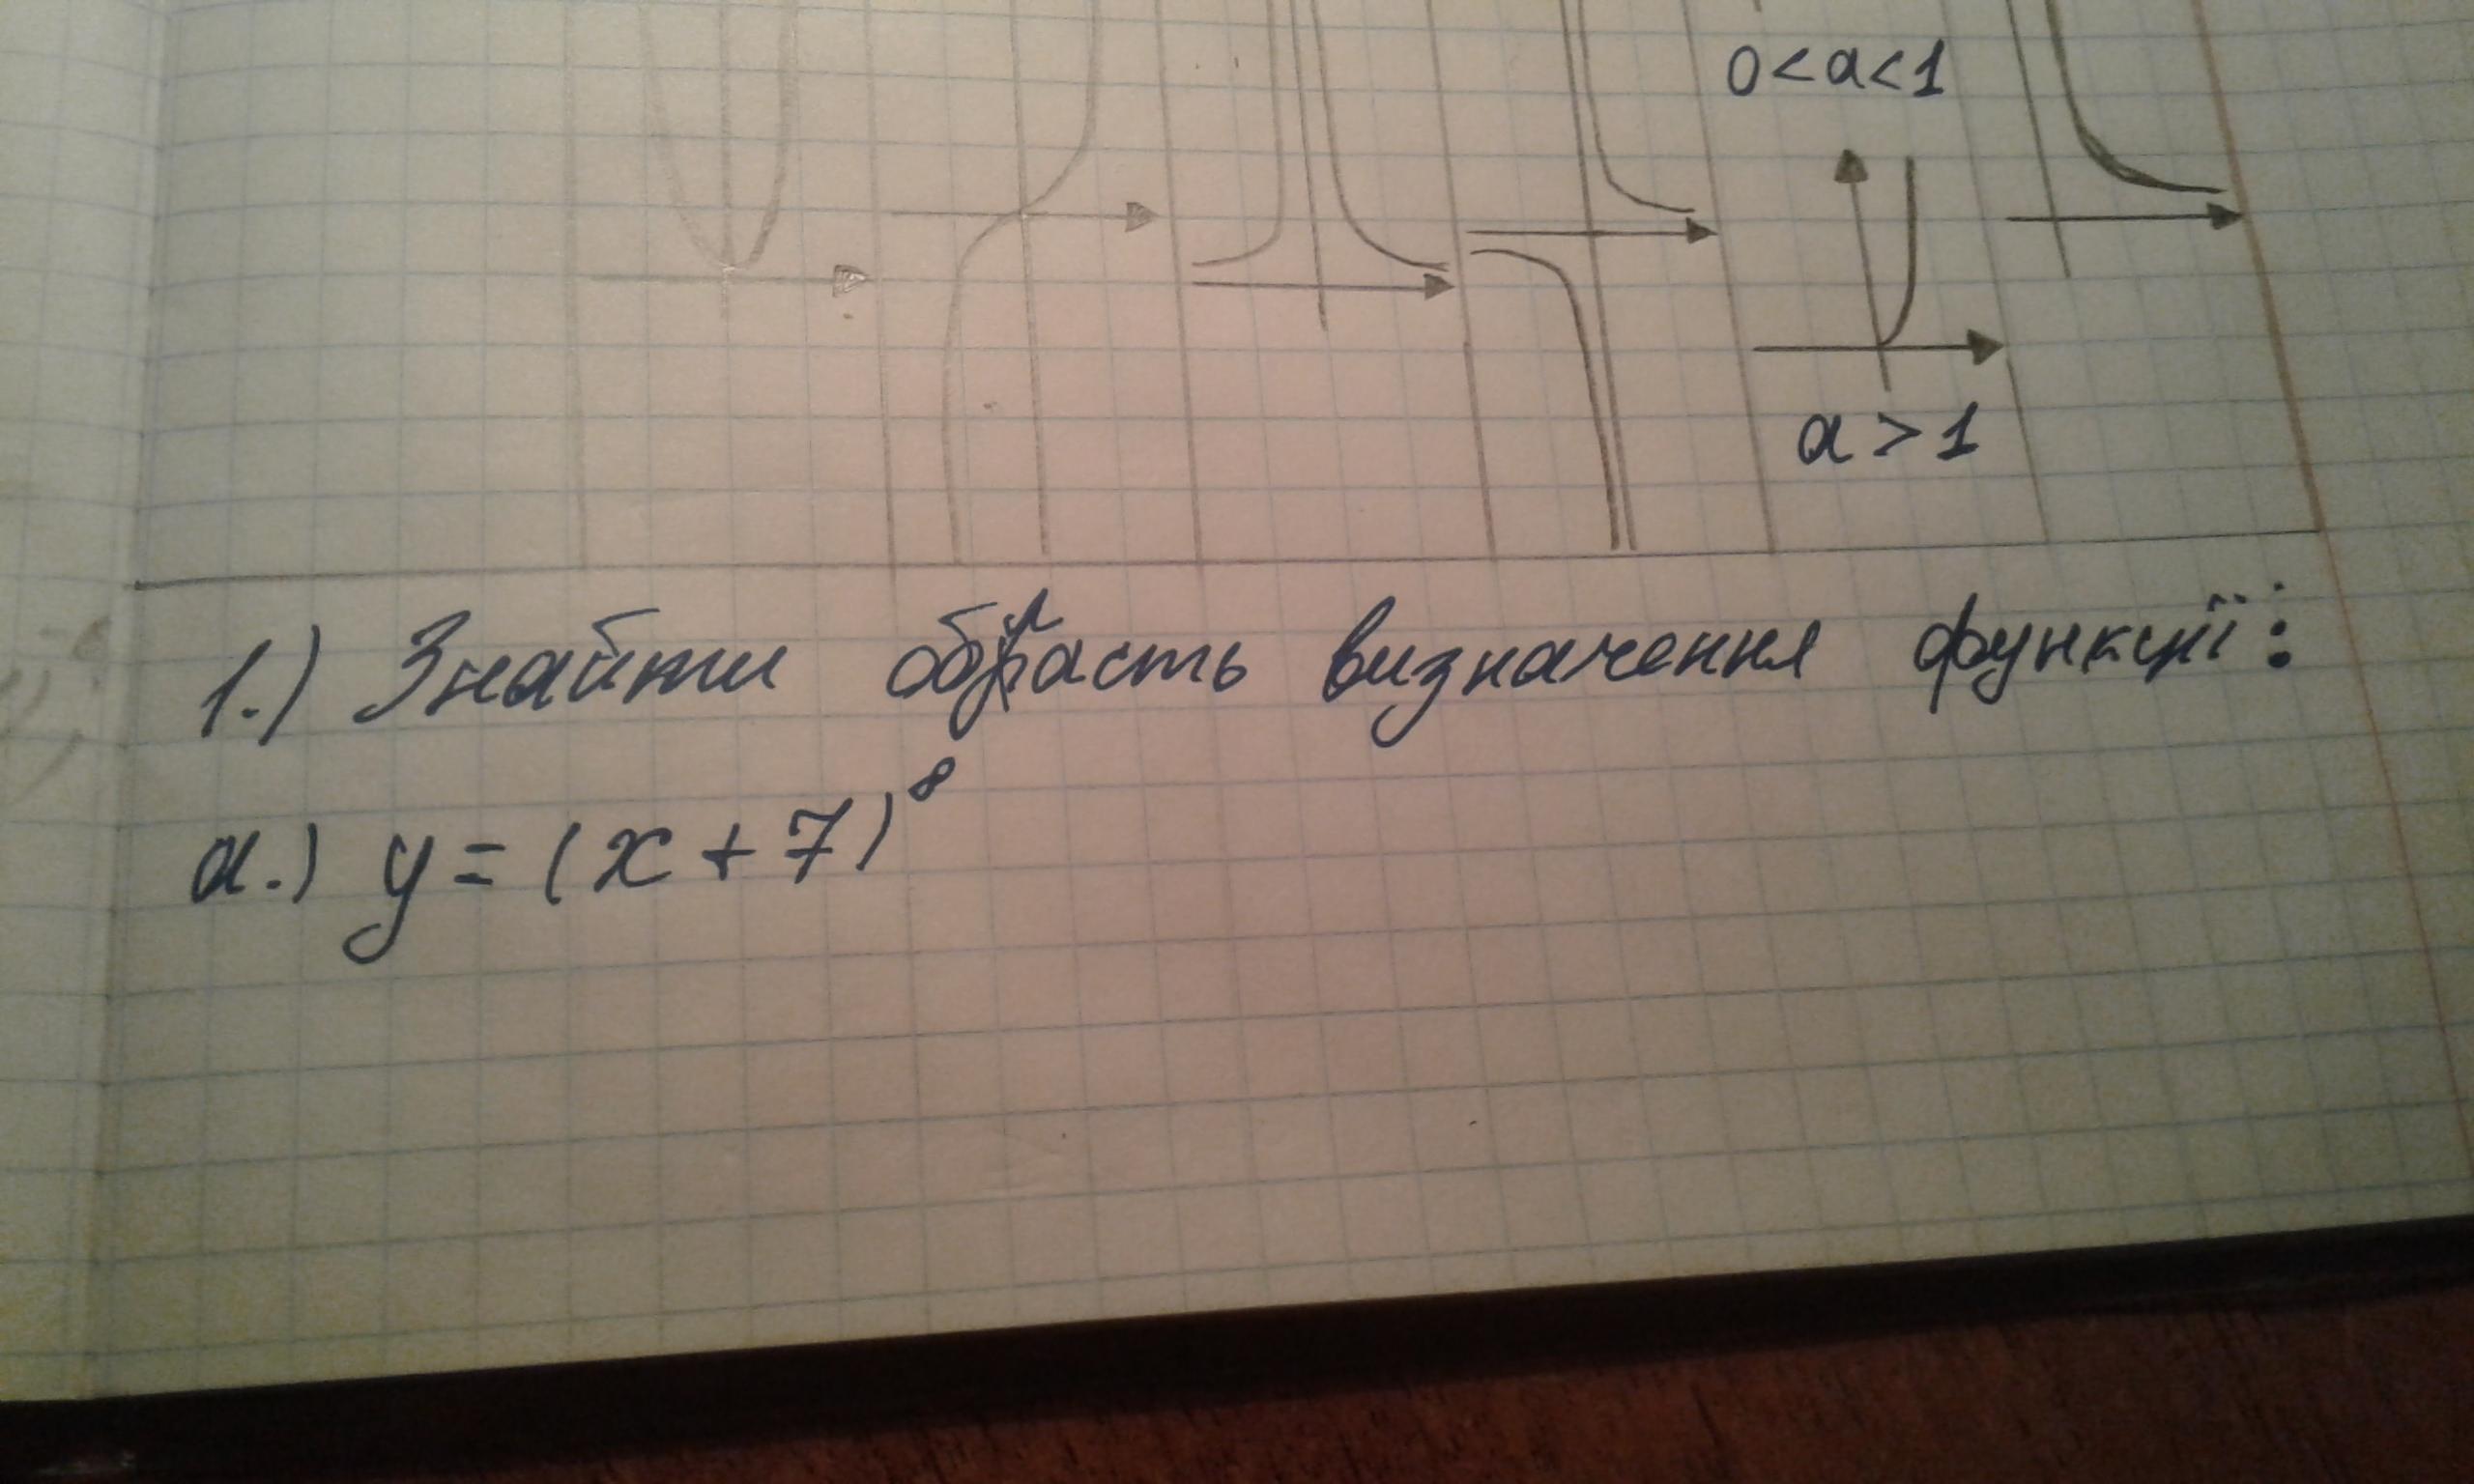 0<a<1
a>1
1.) Знайти область визначення функції:
а.) y=(x+7)⁸